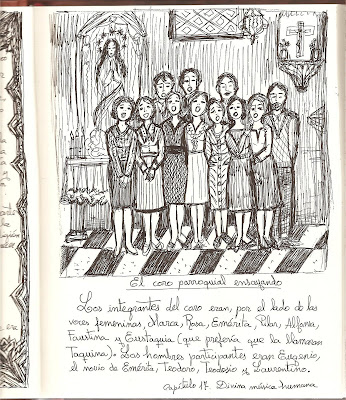 El coro parroquial ensayando
Los integrantes del coro eran, por el lado de las
voces femeninas, Marca, Rosa, Emérita, Pilar, Alfonsa,
Faustina y Eustaquia (que prefería que la llamaran
Taquina). Los hombres participantes eran Eugenio,
el novio de Emérita, Teodoro, Teodosio y Laurentino.
Capítulo 17. Divina música humana.